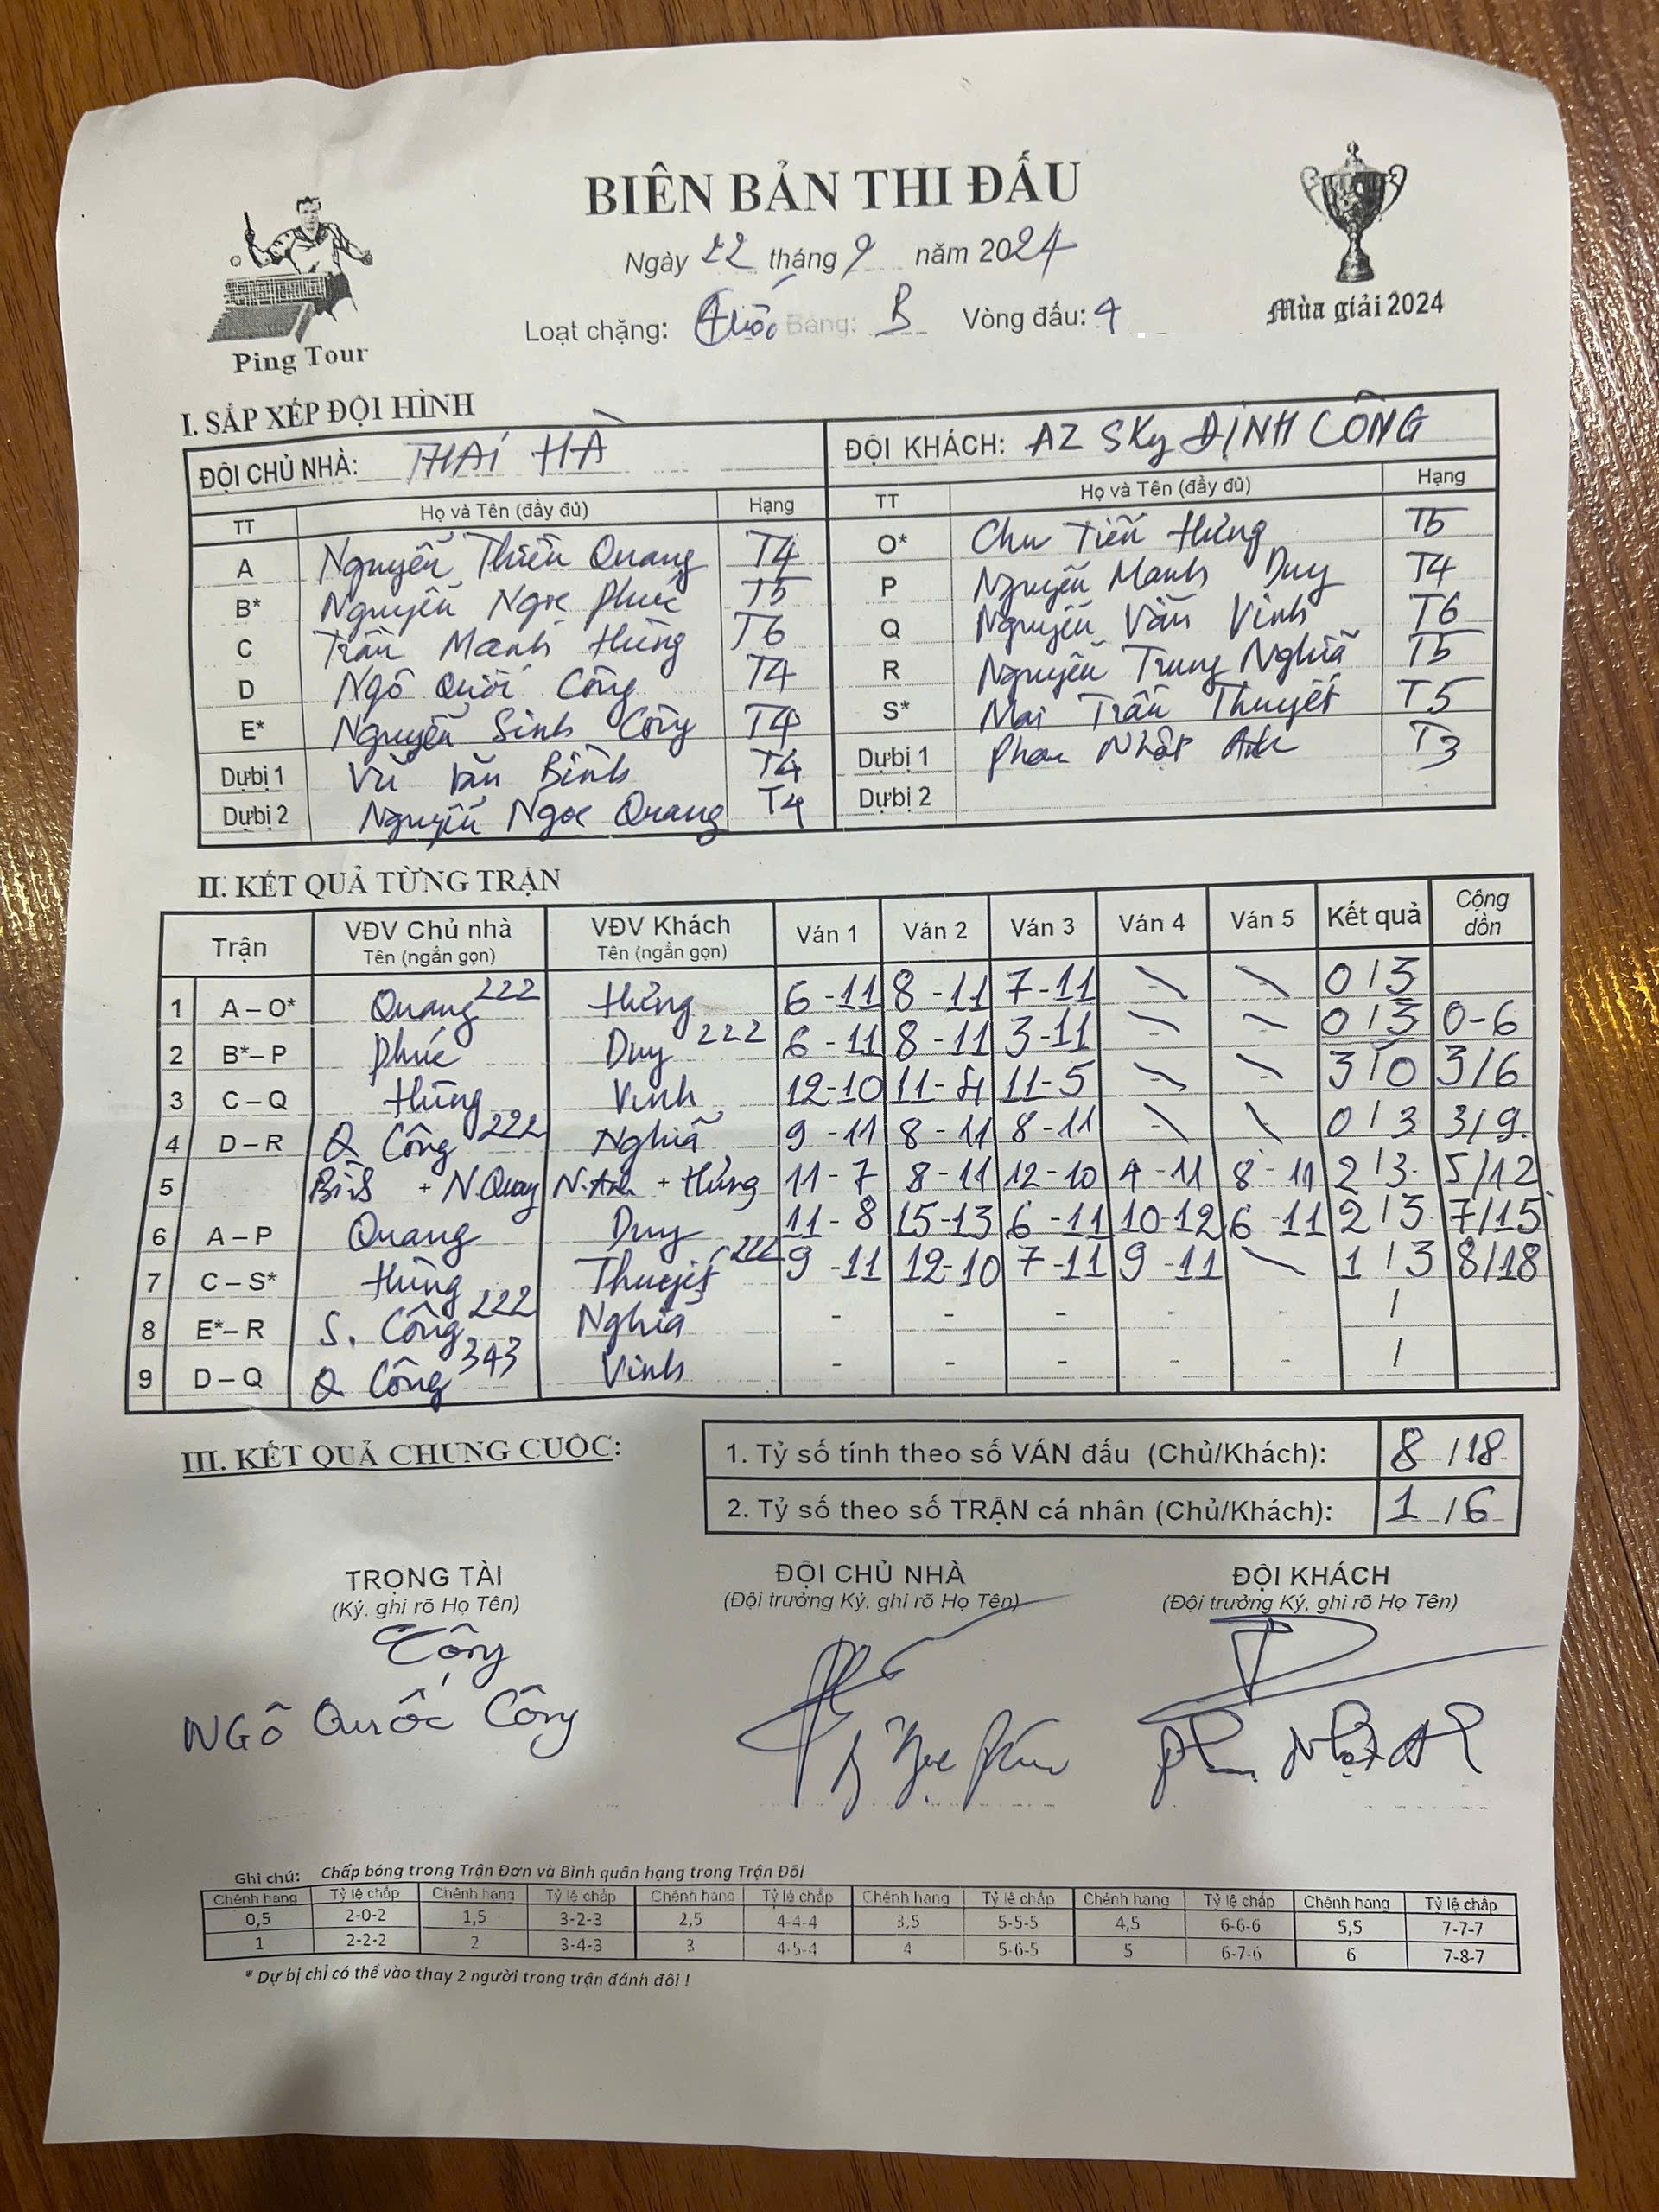 BIÊN BẢN THI ĐẤU
Ngày 22 tháng 9 năm 2024
Loạt chặng: Bảng: B Vòng đấu: 4
Ping Tour
Mùa giải 2024
I. SẮP XẾP ĐỘI HÌNH
ĐỘI CHỦ NHÀ: THÁI HÀ ĐỘI KHÁCH: AZ SKy ĐỊNH CÔNG
TT Họ và Tên (đầy đủ) Hạng TT Họ và Tên (đầy đủ) Hạng
A Nguyễn Thiên Quang T4 O* Chu Tiến Hưng T5
B* Nguyễn Ngọc Phúc T5 P Nguyễn Mạnh Duy T4
C Trần Mạnh Hùng T6 Q Nguyễn Văn Vinh T6
D Ngô Quốc Công T4 R Nguyễn Trung Nghĩa T5
E* Nguyễn Sinh Công T4 S* Mai Trần Thuyết T5
Dự bị 1 Vũ Văn Bình T4 Dự bị 1 Phan Nhật Anh T3
Dự bị 2 Nguyễn Ngọc Quang T4 Dự bị 2
II. KẾT QUẢ TỪNG TRẬN
Trận VĐV Chủ nhà VĐV Khách Ván 1 Ván 2 Ván 3 Ván 4 Ván 5 Kết quả Cộng dồn
Tên (ngắn gọn) Tên (ngắn gọn)
1 A – O* Quang 222 Hưng 6-11 8-11 7-11 0/3
2 B* – P Phúc Duy 222 6-11 8-11 3-11 0/3 0-6
3 C – Q Hùng Vinh 12-10 11-4 11-5 3/0 3/6
4 D – R Q Công 222 Nghĩa 9-11 8-11 8-11 0/3 3/9
5 Bình + N.Quang N.Anh + Hưng 11-7 8-11 12-10 4-11 8-11 2/3 5/12
6 A – P Quang Duy 11-8 15-13 6-11 10-12 6-11 2/3 7/15
7 C – S* Hùng Thuyết 222 9-11 12-10 7-11 9-11 1/3 8/18
8 E* – R S. Công 222 Nghĩa - - - - - /
9 D – Q Q Công 343 Vinh - - - - - /
III. KẾT QUẢ CHUNG CUỘC:
1. Tỷ số tính theo số VÁN đấu (Chủ/Khách): 8/18
2. Tỷ số theo số TRẬN cá nhân (Chủ/Khách): 1/6
TRỌNG TÀI ĐỘI CHỦ NHÀ ĐỘI KHÁCH
(Ký, ghi rõ Họ Tên) (Đội trưởng Ký, ghi rõ Họ Tên) (Đội trưởng Ký, ghi rõ Họ Tên)
Công
NGÔ Quốc Công
Ghi chú: Chấp bóng trong Trận Đơn và Bình quân hạng trong Trận Đôi
Chênh hạng Tỷ lệ chấp Chênh hạng Tỷ lệ chấp Chênh hạng Tỷ lệ chấp Chênh hạng Tỷ lệ chấp Chênh hạng Tỷ lệ chấp Chênh hạng Tỷ lệ chấp
0,5 2-0-2 1,5 3-2-3 2,5 4-4-4 3,5 5-5-5 4,5 6-6-6 5,5 7-7-7
1 2-2-2 2 3-4-3 3 4-5-4 4 5-6-5 5 6-7-6 6 7-8-7
* Dự bị chỉ có thể vào thay 2 người trong trận đánh đôi !